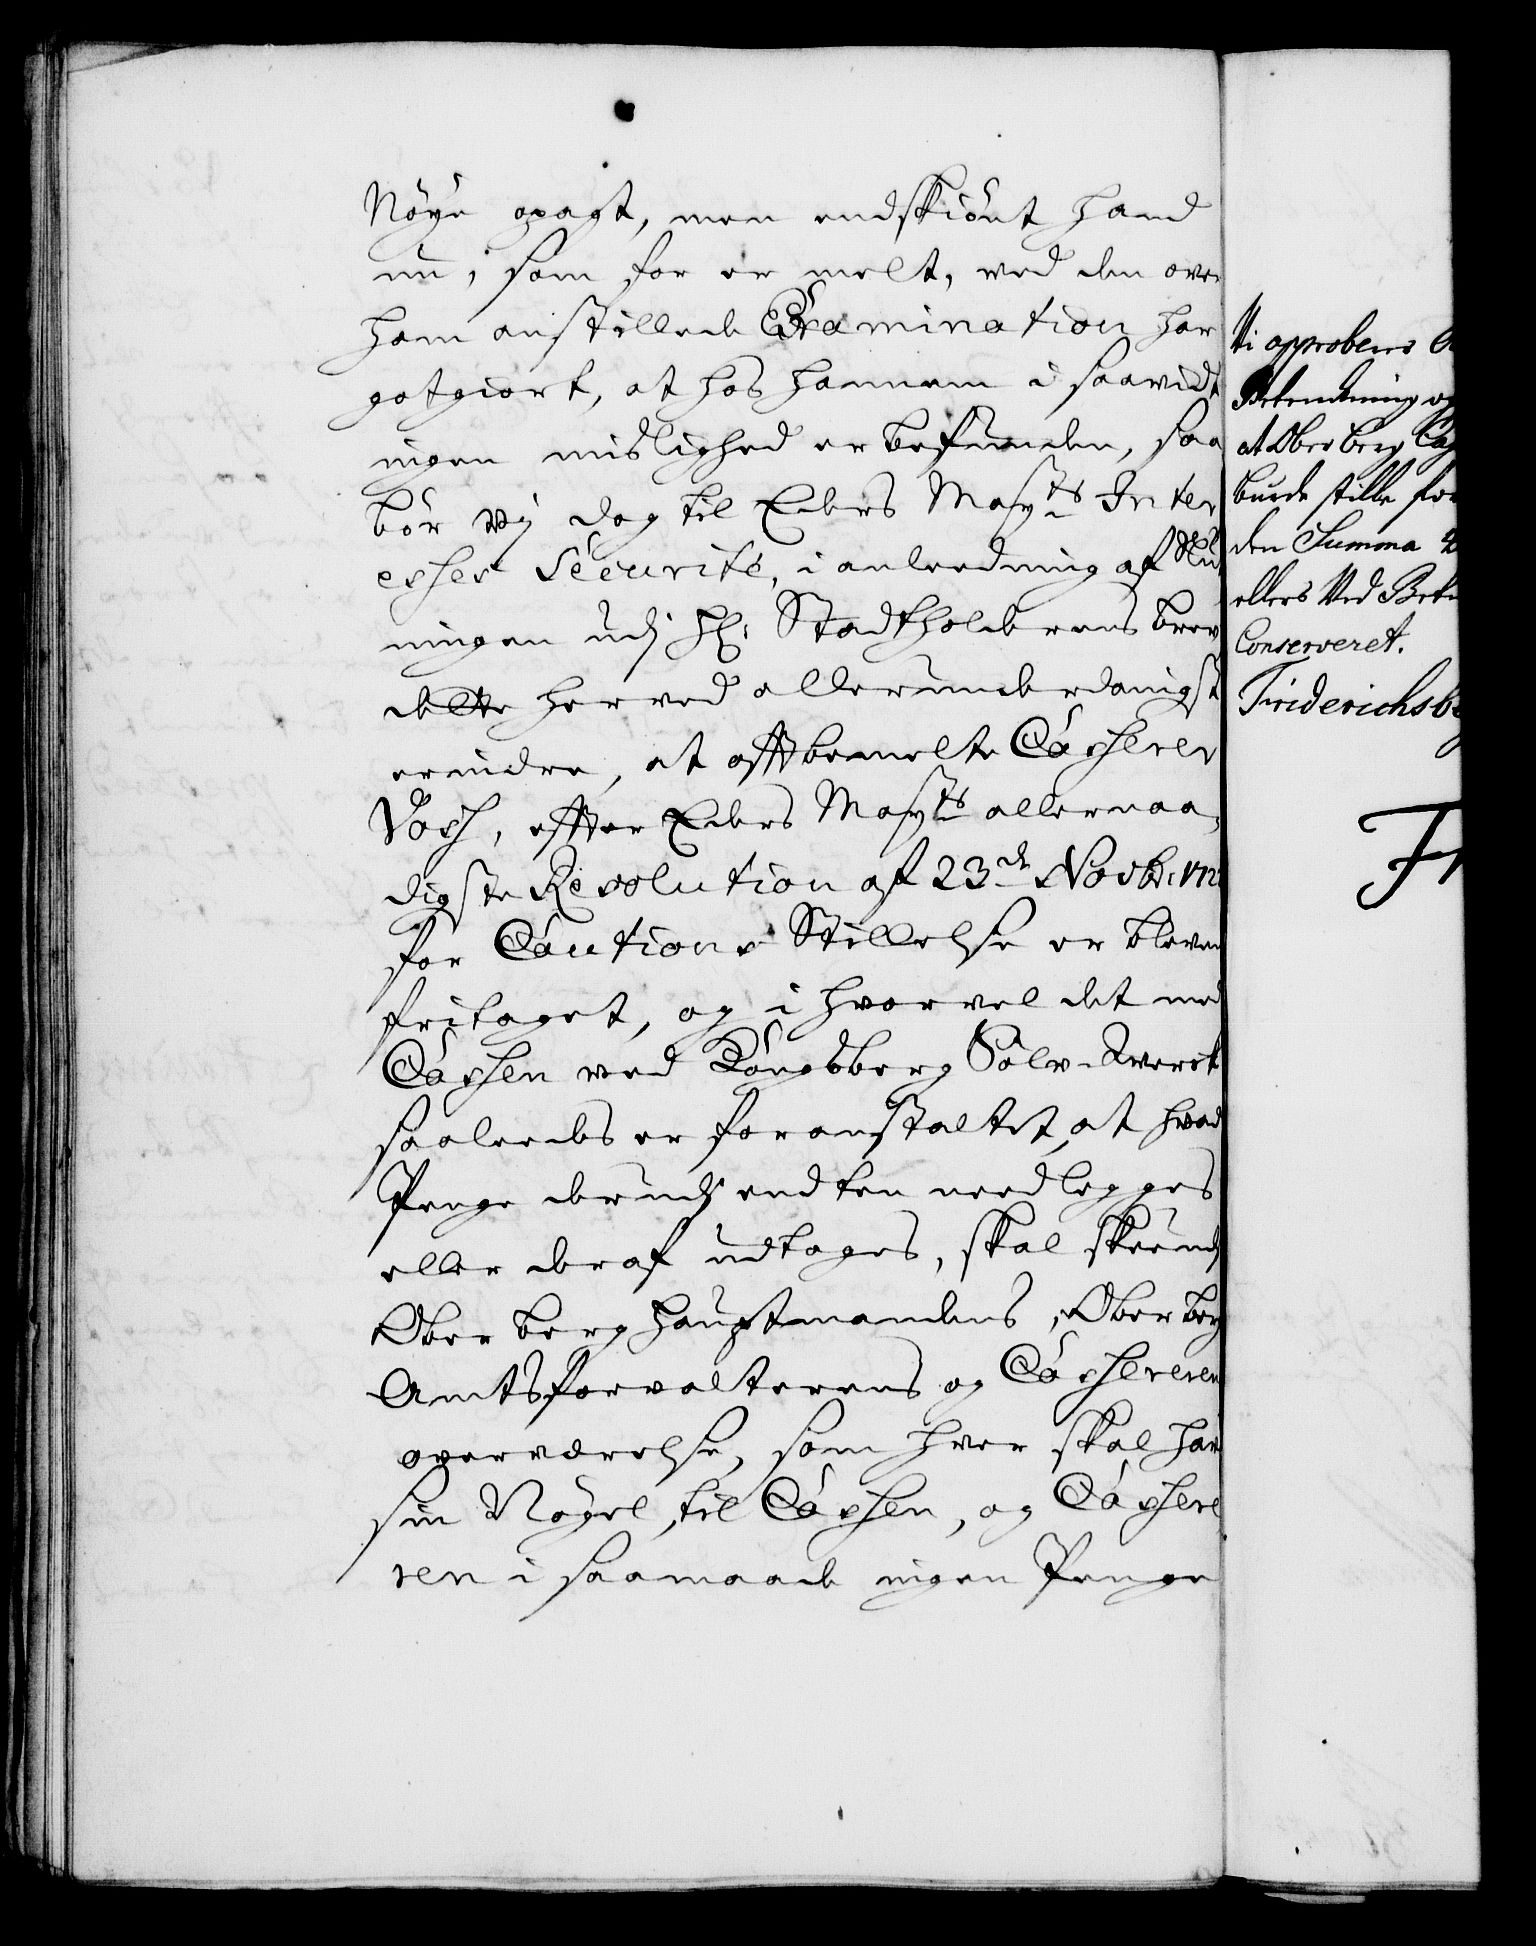 Nøye opagt, men endskiønt hand
nu, som for er melt, ved den over
ham anstillede Examination har
gotgiort, at hos hannem i saavidt
ingen mislighed er befunden, saa
bør vj dog til Eders Mayts Inter
esses Securité, i anledning af
ningen udj H: Stadtholderens brev
dette herved allerunderdanigst
erindre, at offbemelte Casserer
Vosh, efter Eders Mayts allernaa,
digste Resolution af 23de Novbr:
for Cautions Stillelse er bleven
fritaget, og i hvorvel det med
Cassen ved Kongsberg Sølv-Werck
saaledes er foranstaltet, at hvad
Penge derudj endten needlegges
eller deraf udtages, skal skee udj
Oberberghauptmandens, Oberberg
Amtsforvalterens og Cassereren
overværelse, som hver skal har
sin Nøgel, til Cassen, og Cassere
ren i saamaade ingen Penge
Vi approberer
Betenckning og
at Ober berg
burde stille for
den Summa
ellers Ved
Conserveret.
Friderichsbe
Fr